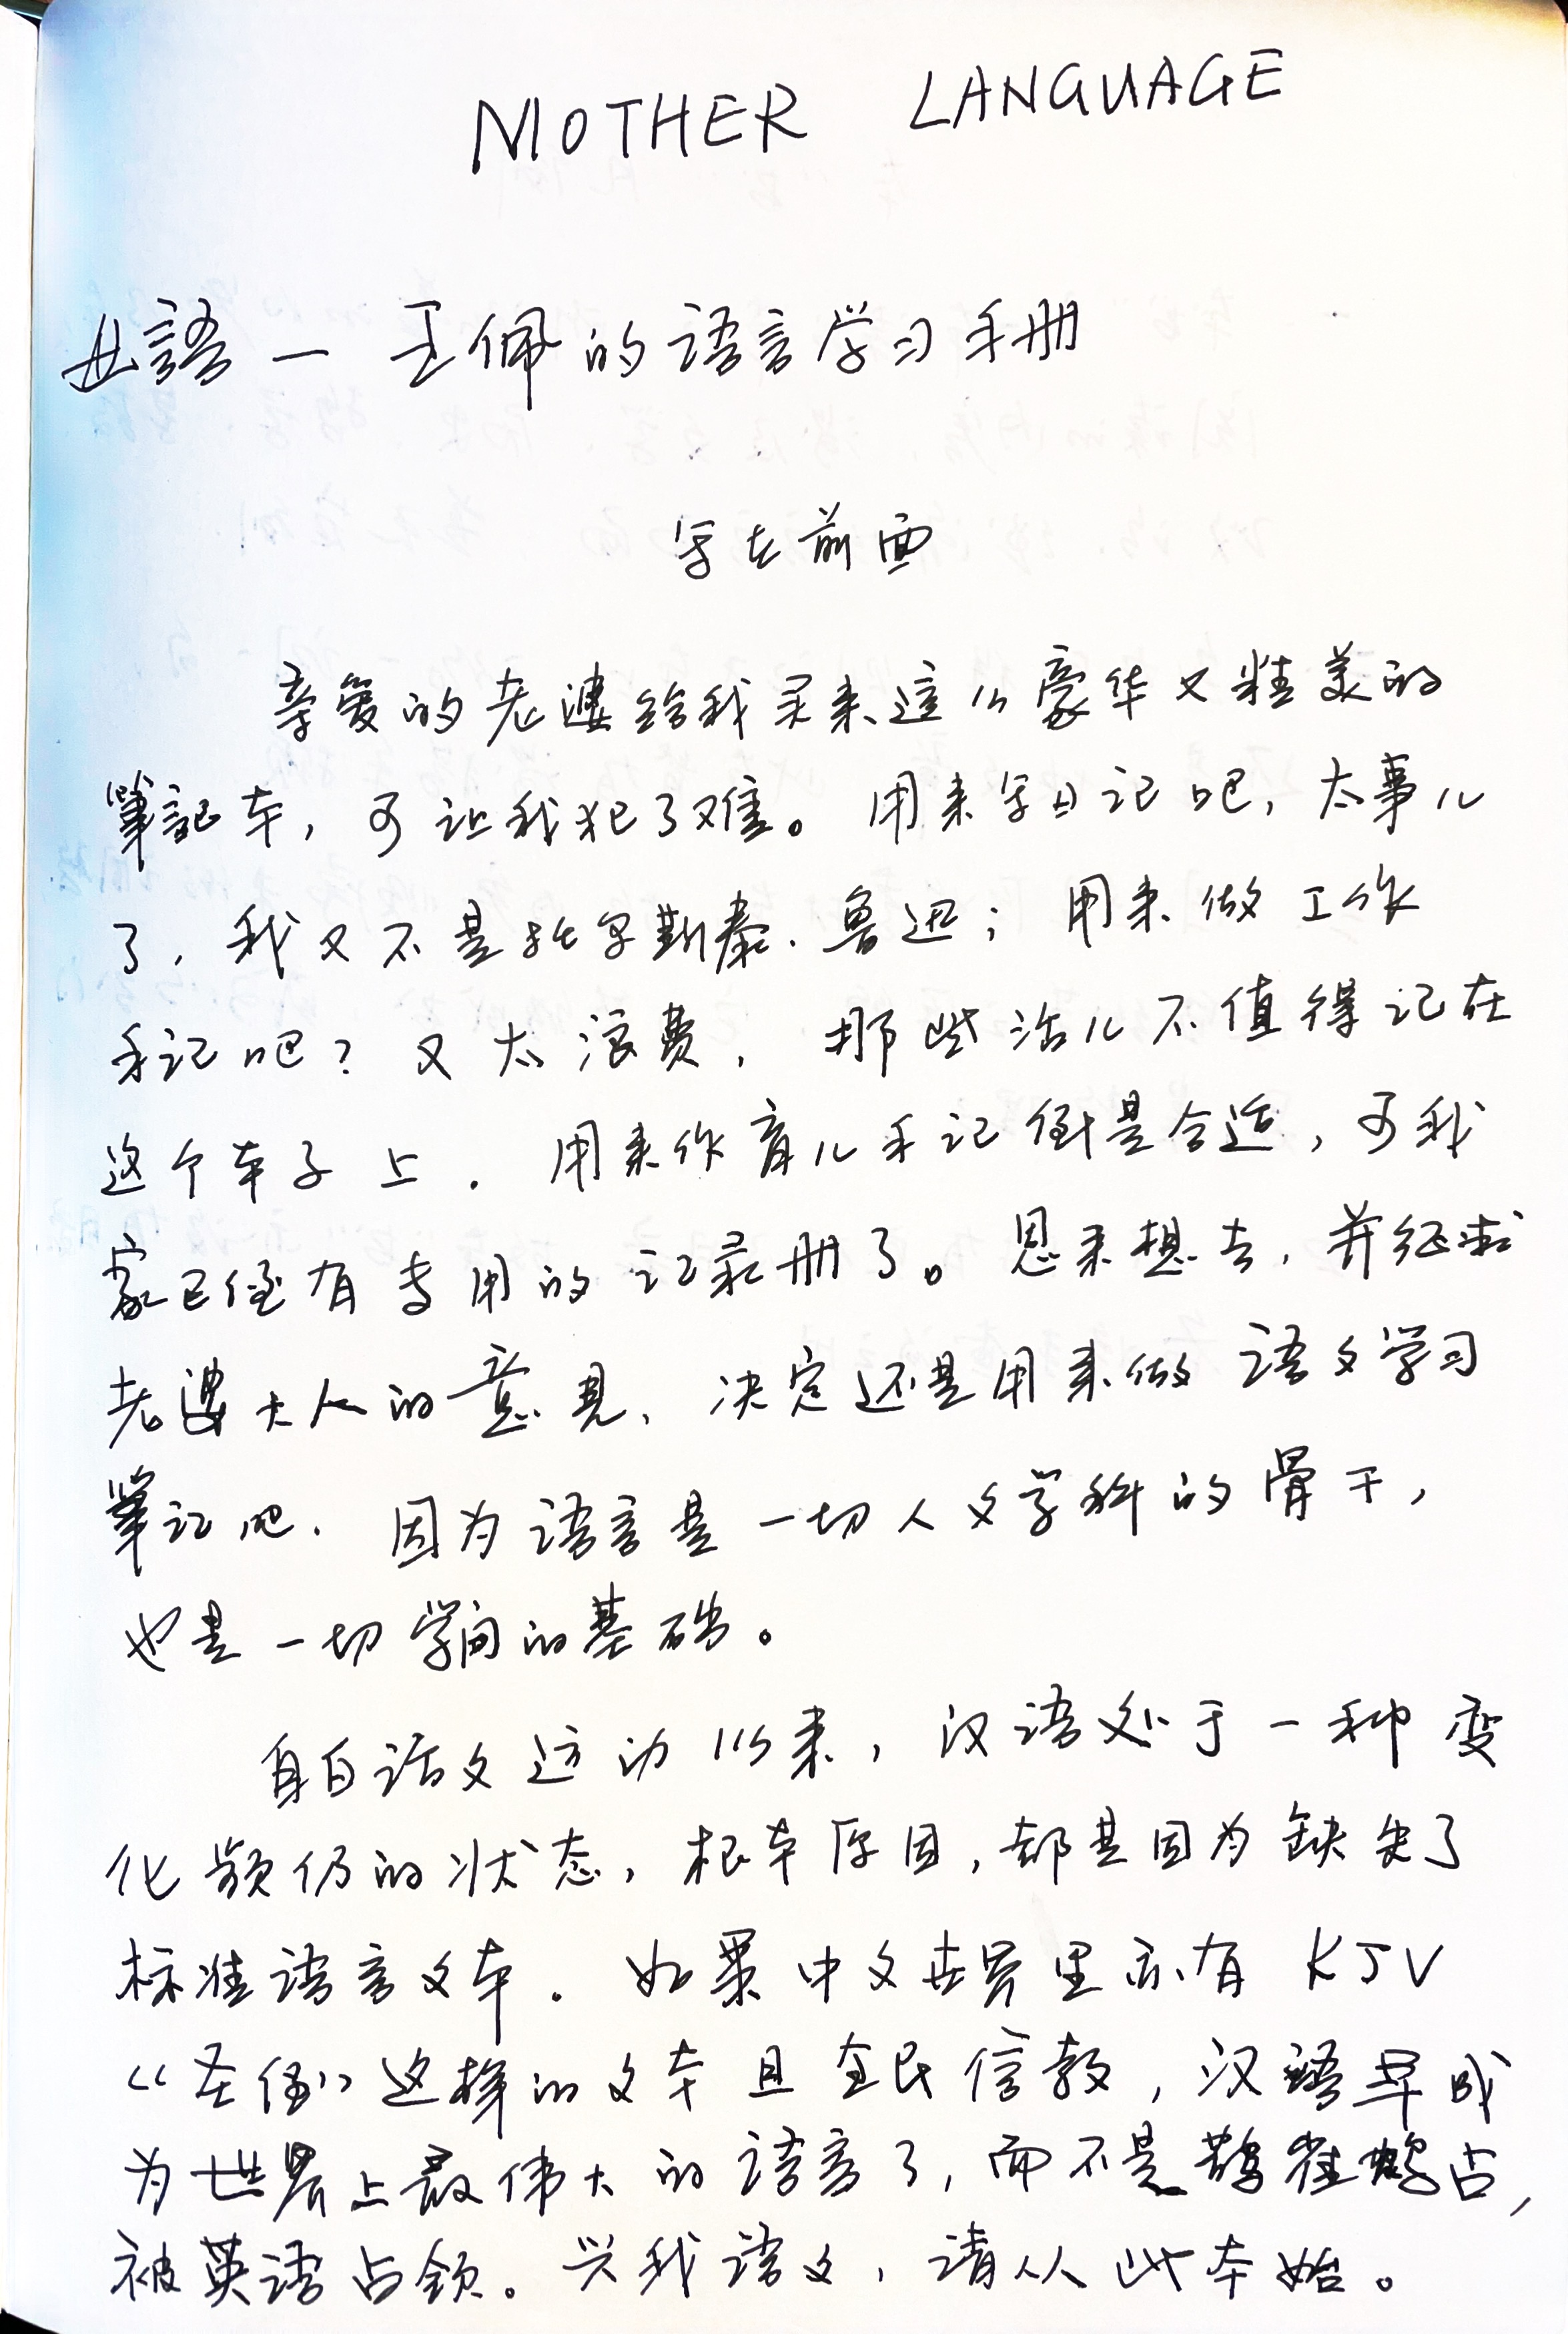 MOTHER LANGUAGE
母語 — 王佩的语言学习手册
写在前面
亲爱的老婆给我买来这么豪华又精美的
筆記本，可让我犯了难。用来写日记吧，太事儿
了，我又不是托尔斯泰、鲁迅；用来做工作
手记吧？又太浪费，那些活儿不值得记在
这个本子上。用来作育儿手记倒是合适，可我
家已经有专用的记录册了。思来想去，并征求
老婆大人的意见，决定还是用来做语文学习
筆记吧。因为语言是一切人文学科的骨干，
也是一切学问的基础。
自白话文运动以来，汉语处于一种变
化频仍的状态，根本原因，都是因为缺失了
标准语言文本。如果中文世界里亦有KJV
《圣经》这样的文本且全民信教，汉語早成
为世界上最伟大的语言了，而不是鹊巢鸠占，
被英语占领。兴我语文，请从此本始。